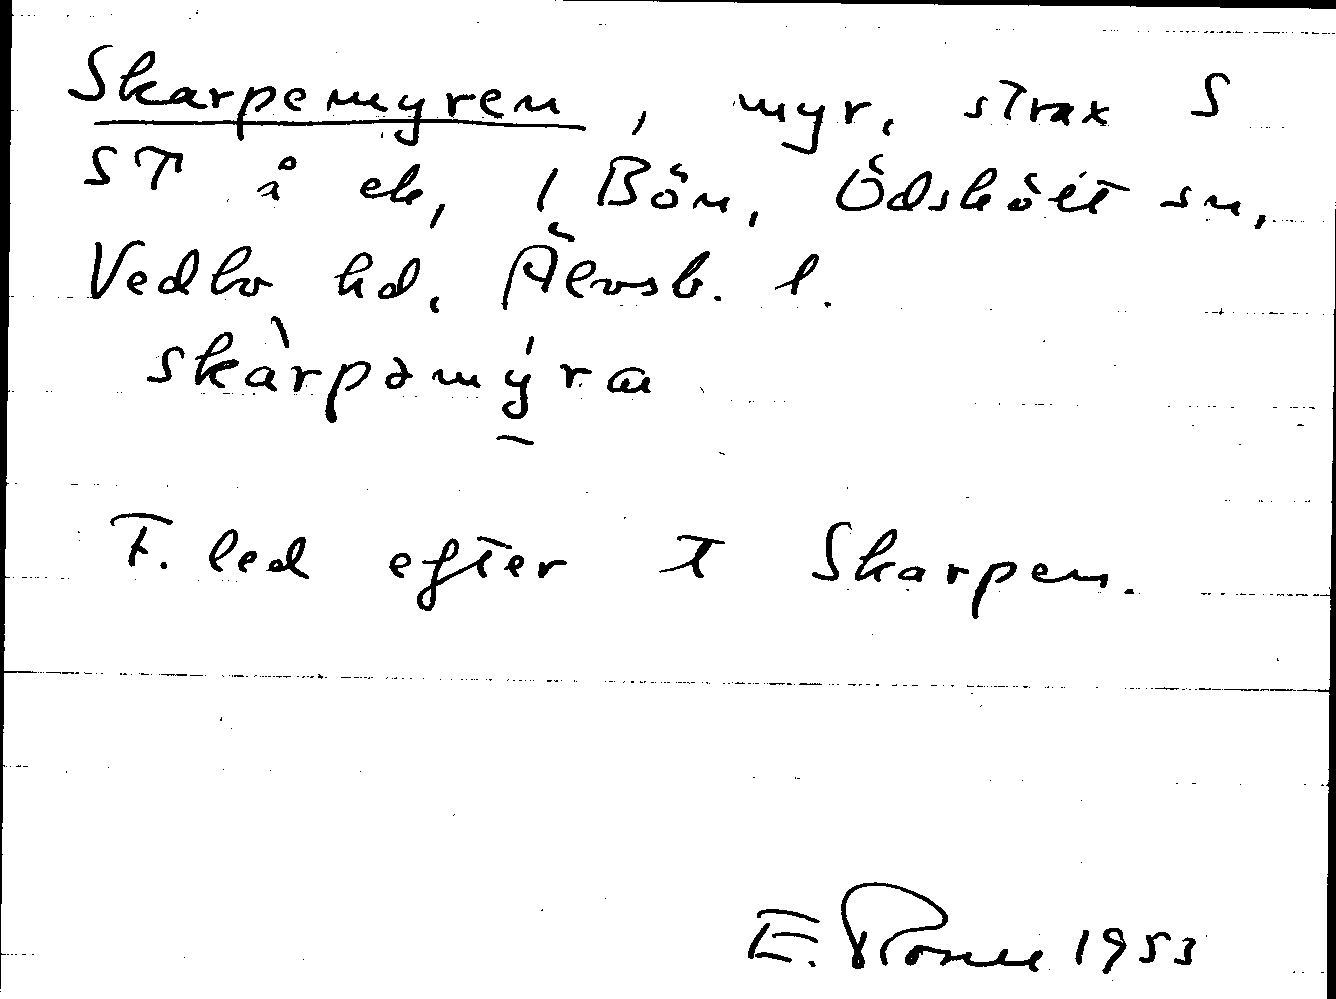 Skarpemyren, myr, strax S
ST å ek, 1 Bön, Ödskölt sn,
Vedbo hd, Älvsb. l.
skàrpəmýra
F. led efter T Skarpen.
E. 1953